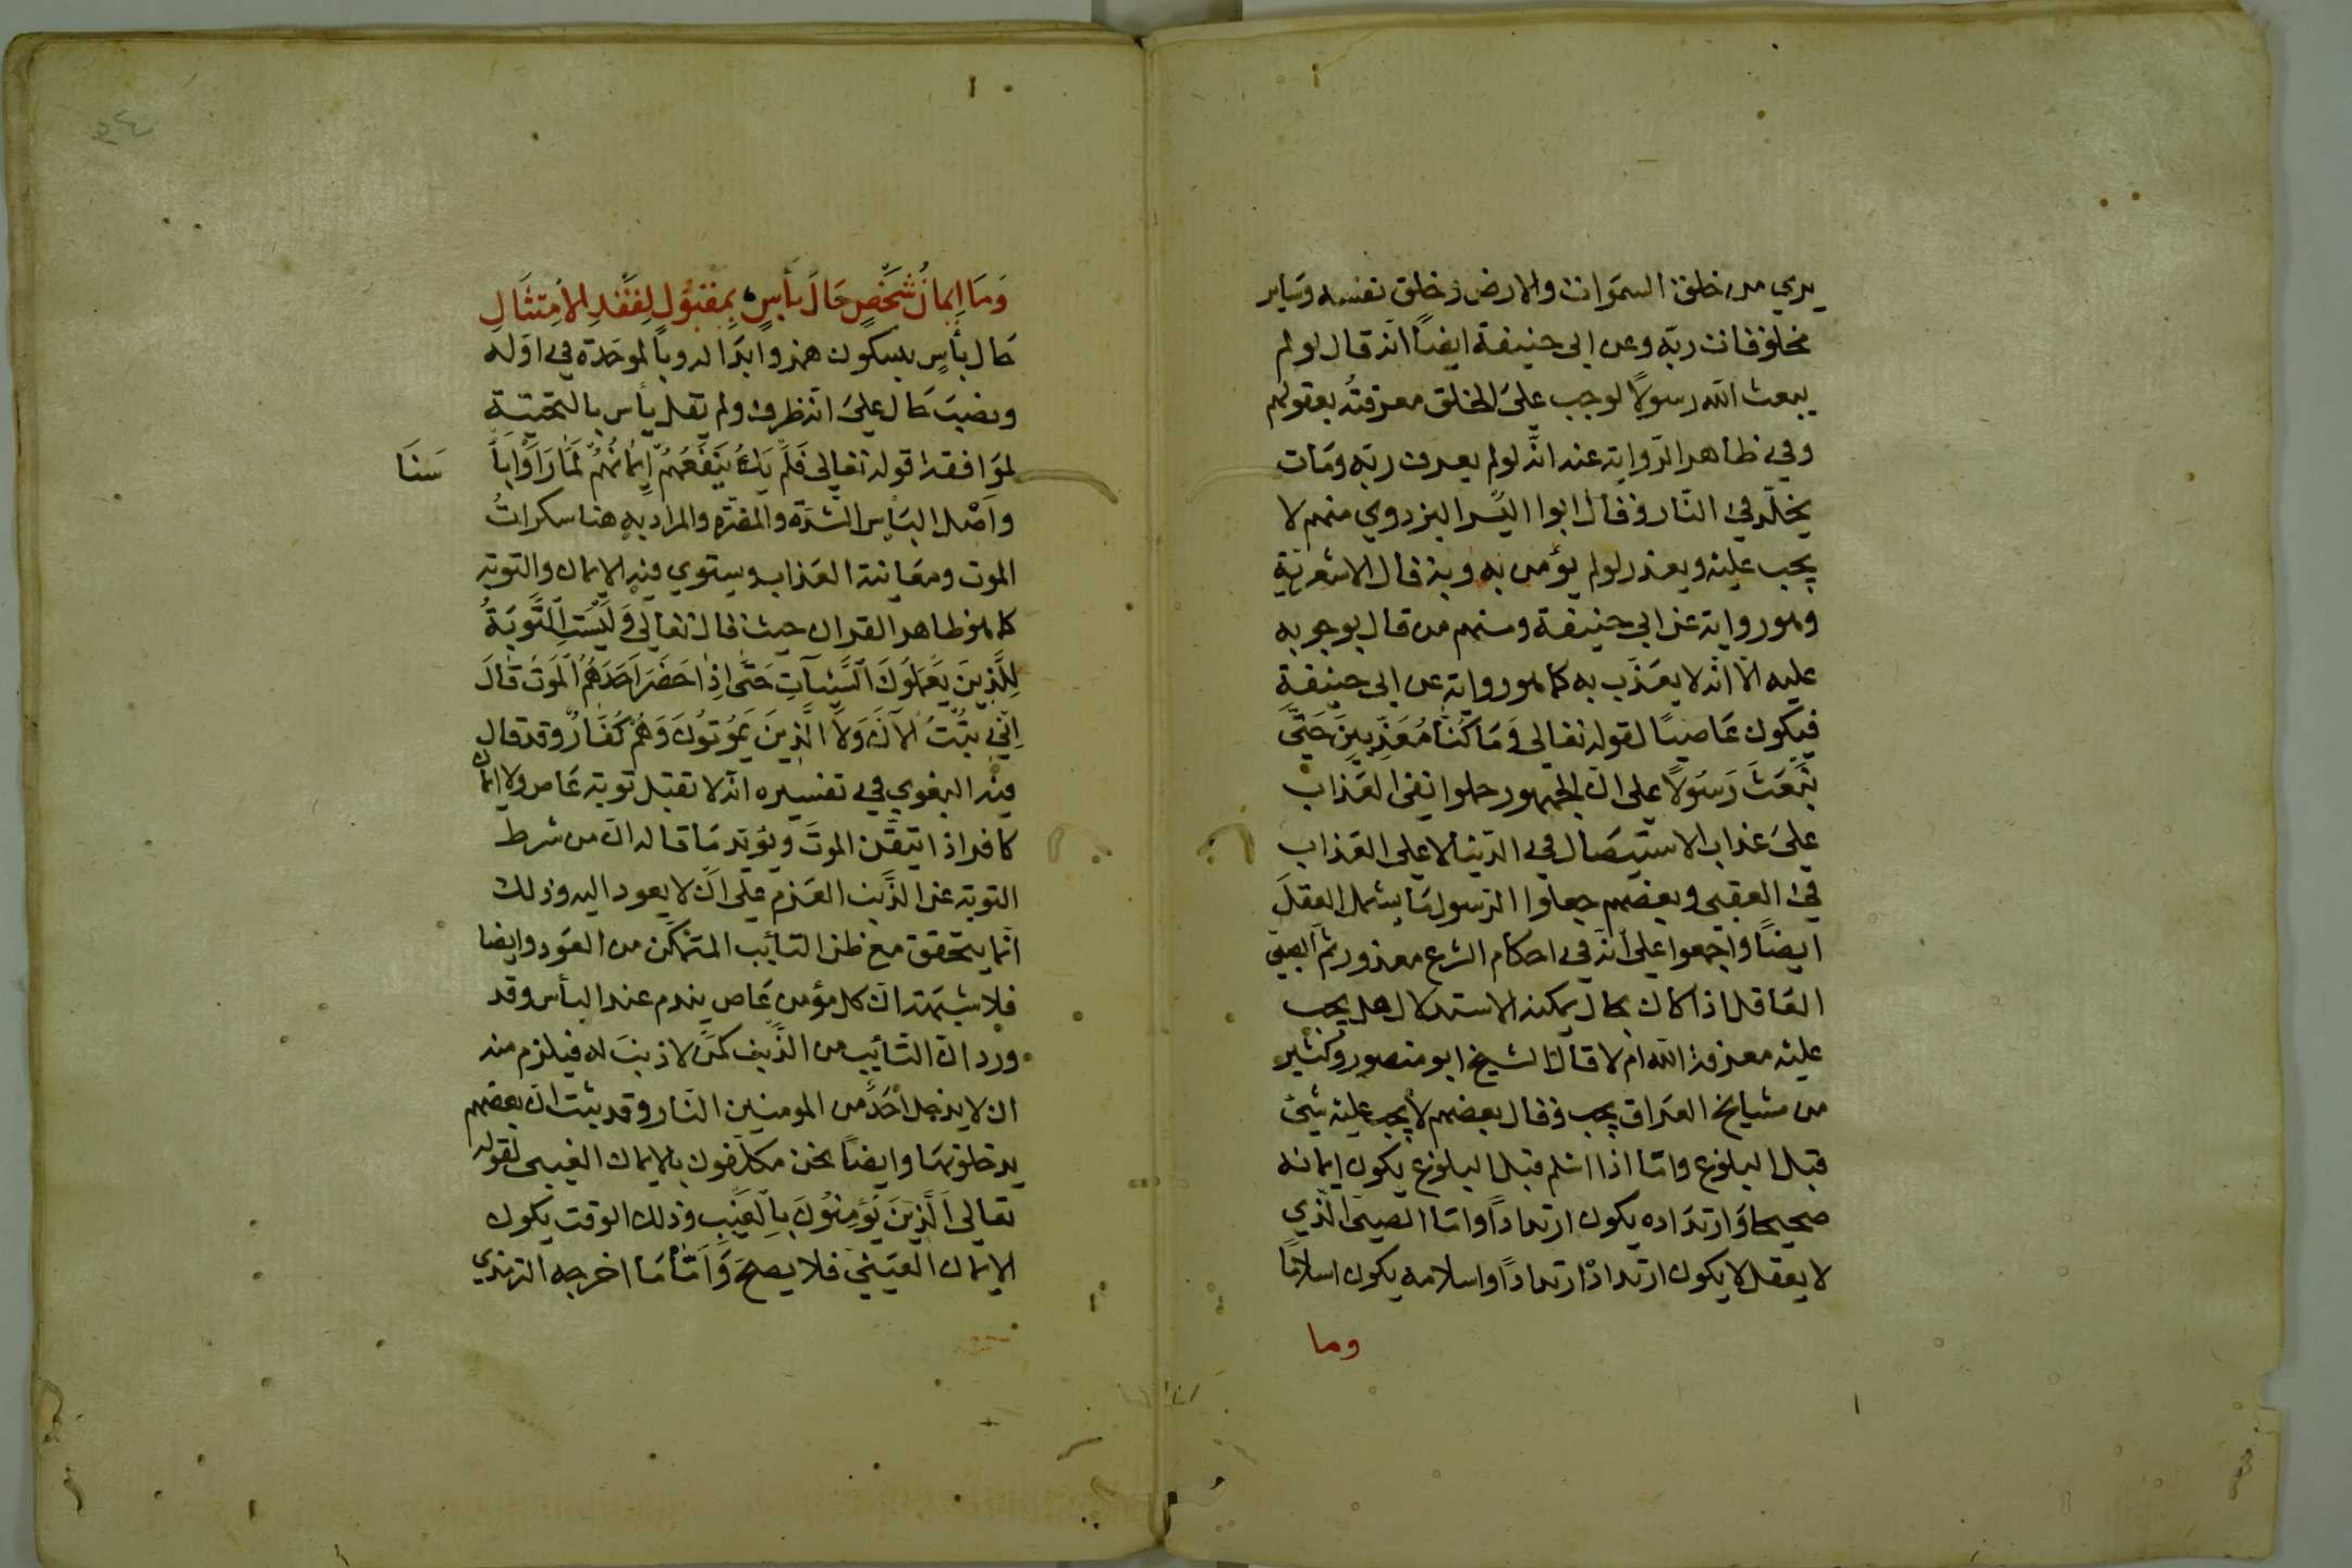 يري من خلق السموات والارض وخلق نفسه وساير
مخلوقات ربه وعن ابي حنيفة ايضاً انه قال لو لم
يبعث الله رسولاً لوجب علي الخلق معرفته بعقولهم
وفي ظاهر الرواية عنه انه لو لم يعرف ربه ومات
يخلد في النار وقال ابوا اليسر البزدوي منهم لا
يجب عليه ويعذر لو لم يؤمن به وبه قال الاشعرية
وهو رواية عن ابي حنيفة ومنهم من قال بوجوبه
عليه الا انه لا يعذب به كما هو رواية عن ابي حنيفة
فيكون عاصياً لقوله تعالي وَمَا كُنَّا مُعَذِّبِينَ حَتَّي
نَبْعَثَ رَسُولاً علي ان الجمهور حملوا نفي العذاب
علي عذاب الاستيصال في الدنيا لا علي العذاب
في العقبي وبعضهم جعلوا الرسول ما يشمل العقل
ايضاً واجمعوا علي انه في احكام الشرع معذور ثم الصبي
العاقل اذا كان بحال يمكنه الاستدلال هل يجب
عليه معرفة الله ام لا قال الشيخ ابو منصور وكثير
من مشايخ العراق يجب وقال بعضهم لا يجب عليه شئ
قبل البلوغ واما اذا اسلم قبل البلوغ يكون ايمانه
صحيحا وارتداده يكون ارتداداً واما الصبي الذي
لا يعقل لا يكون ارتداده ارتداداً واسلامه يكون اسلاماً
وما
وَمَا إِيمَانُ شَخْصٍ حَالَ بَأْسٍ بِمَقْبُولٍ لِفَقْدِ الاِمْتِثَالِ
حال بأسٍ بسكون همزه وابداله وبا لموحدة في اوله
ونصب حال علي انه ظرف ولم يقل يأس بالتحتية
لموافقة قوله تعالي فَلَمْ يَكُ يَنْفَعُهُمْ إِيمَانُهُمْ لَمَّا رَاَوْا بَأْ
سَنَا
واصل البأس الشدة والمضرة والمراد به هنا سكرات
الموت ومعاينة العذاب ويستوي فيه الايمان والتوبة
كما هو ظاهر القران حيث قال تعالي وَلَيْسَتِ التَّوْبَةُ
لِلَّذِينَ يَعْمَلُونَ السَّيِّئَاتِ حَتَّى اِذَا حَضَرَ اَحَدَهُمُ الْمَوْتُ قَالَ
اِنِّي تُبْتُ الْآنَ وَلَا الَّذِينَ يَمُوتُونَ وَهُمْ كُفَّارٌ وقد قال
فيه البغوي في تفسيره انه لا تقبل توبة عاص ولا ايمان
كافر اذا تيقن الموت ويؤيد ما قاله ان من شرط
التوبة عن الذنب العزم علي ان لا يعود اليه وذلك
انما يتحقق مع ظن التائب المتمكن من العود وايضا
فلا شبهة ان كل مؤمن عاص يندم عند البأس وقد
ورد ان التائب من الذنب كمن لا ذنب له فيلزم منه
ان لا يدخل احد من المومنين النار وقد ثبت ان بعضهم
يدخلونها وايضاً نحن مكلفون بالايمان الغيبي لقوله
تعالي اَلَّذِينَ يُؤْمِنُونَ بِالْغَيْبِ وذلك الوقت يكون
الايمان العيني فلا يصح وَاَمَّا مَا اخرجه الترمذي